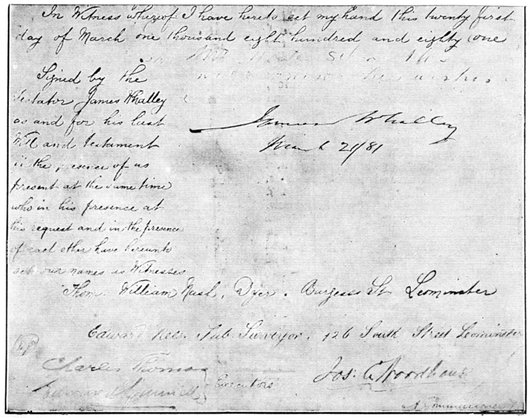 In Witness whereof I have hereto set my hand this twenty first
day of March one thousand eight hundred and eighty one
Signed by the
Testator James Whalley
as and for his last
Will and testament
in the presence of us
present at the same time
who in his presence at
his request and in the presence
of each other have hereunto
set our names as Witnesses
James Whalley
March 21/81
Thom. William Nash, Dyer, Burgess St. Leominster
Edward Lee, Surveyor, 126 South Street Leominster
Charles Thomas
Executors
Jos. Woodhouse
A Commissioner